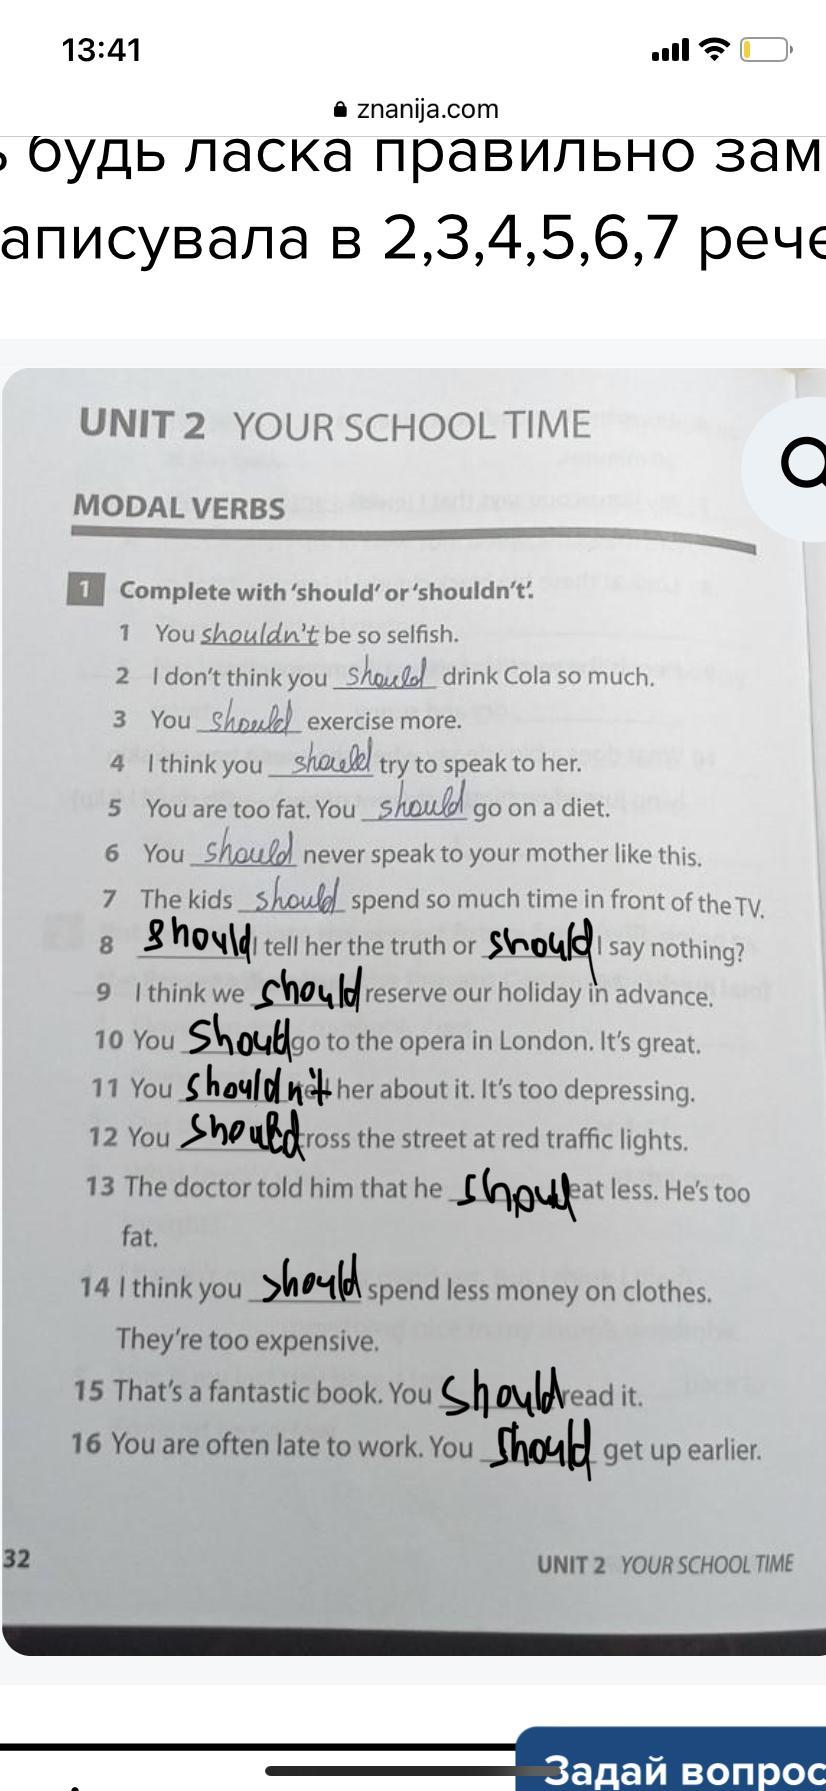 13:41
znanija.com
будь ласка правильно зам
аписувала в 2,3,4,5,6,7 рече
UNIT 2 YOUR SCHOOL TIME
MODAL VERBS
1 Complete with 'should' or 'shouldn't'.
1 You shouldn't be so selfish.
2 I don't think you should drink Cola so much.
3 You should exercise more.
4 I think you should try to speak to her.
5 You are too fat. You should go on a diet.
6 You should never speak to your mother like this.
7 The kids should spend so much time in front of the TV.
8 should I tell her the truth or should I say nothing?
9 I think we should reserve our holiday in advance.
10 You should go to the opera in London. It's great.
11 You shouldn't tell her about it. It's too depressing.
12 You should cross the street at red traffic lights.
13 The doctor told him that he shoul eat less. He's too
fat.
14 I think you should spend less money on clothes.
They're too expensive.
15 That's a fantastic book. You should read it.
16 You are often late to work. You should get up earlier.
32
UNIT 2 YOUR SCHOOL TIME
Задай вопрос